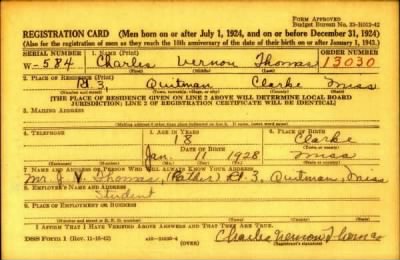 FORM APPROVED
Budget Bureau No. 33-R012-42
REGISTRATION CARD (Men born on or after July 1, 1924, and on or before December 31, 1924)
(Also for the registration of men as they reach the 18th anniversary of the date of their birth on or after January 1, 1943.)
SERIAL NUMBER 1. NAME (Print) ORDER NUMBER
W-584 Charles Vernon Thomas 13030
(First) (Middle) (Last)
2. PLACE OF RESIDENCE (Print)
Rt 3, Quitman Clarke Miss
(Number and street) (Town, township, village, or city) (County) (State)
[THE PLACE OF RESIDENCE GIVEN ON LINE 2 ABOVE WILL DETERMINE LOCAL BOARD
JURISDICTION; LINE 2 OF REGISTRATION CERTIFICATE WILL BE IDENTICAL]
3. MAILING ADDRESS
4. TELEPHONE 5. AGE IN YEARS 6. PLACE OF BIRTH
18 Clarke
DATE OF BIRTH
Jan. 11 1928 Miss
7. NAME AND ADDRESS OF PERSON WHO WILL ALWAYS KNOW YOUR ADDRESS
Mr. Thomas, (Father) Rt. 3, Quitman, Miss
8. EMPLOYER'S NAME AND ADDRESS
Student
9. PLACE OF EMPLOYMENT OR BUSINESS
(Number and street or R. F. D. number) (Town) (County) (State)
I AFFIRM THAT I HAVE VERIFIED ABOVE ANSWERS AND THAT THEY ARE TRUE.
DSS Form 1 (Rev. 11-16-42) (OVER) Charles Vernon Thomas
(Registrant's signature)